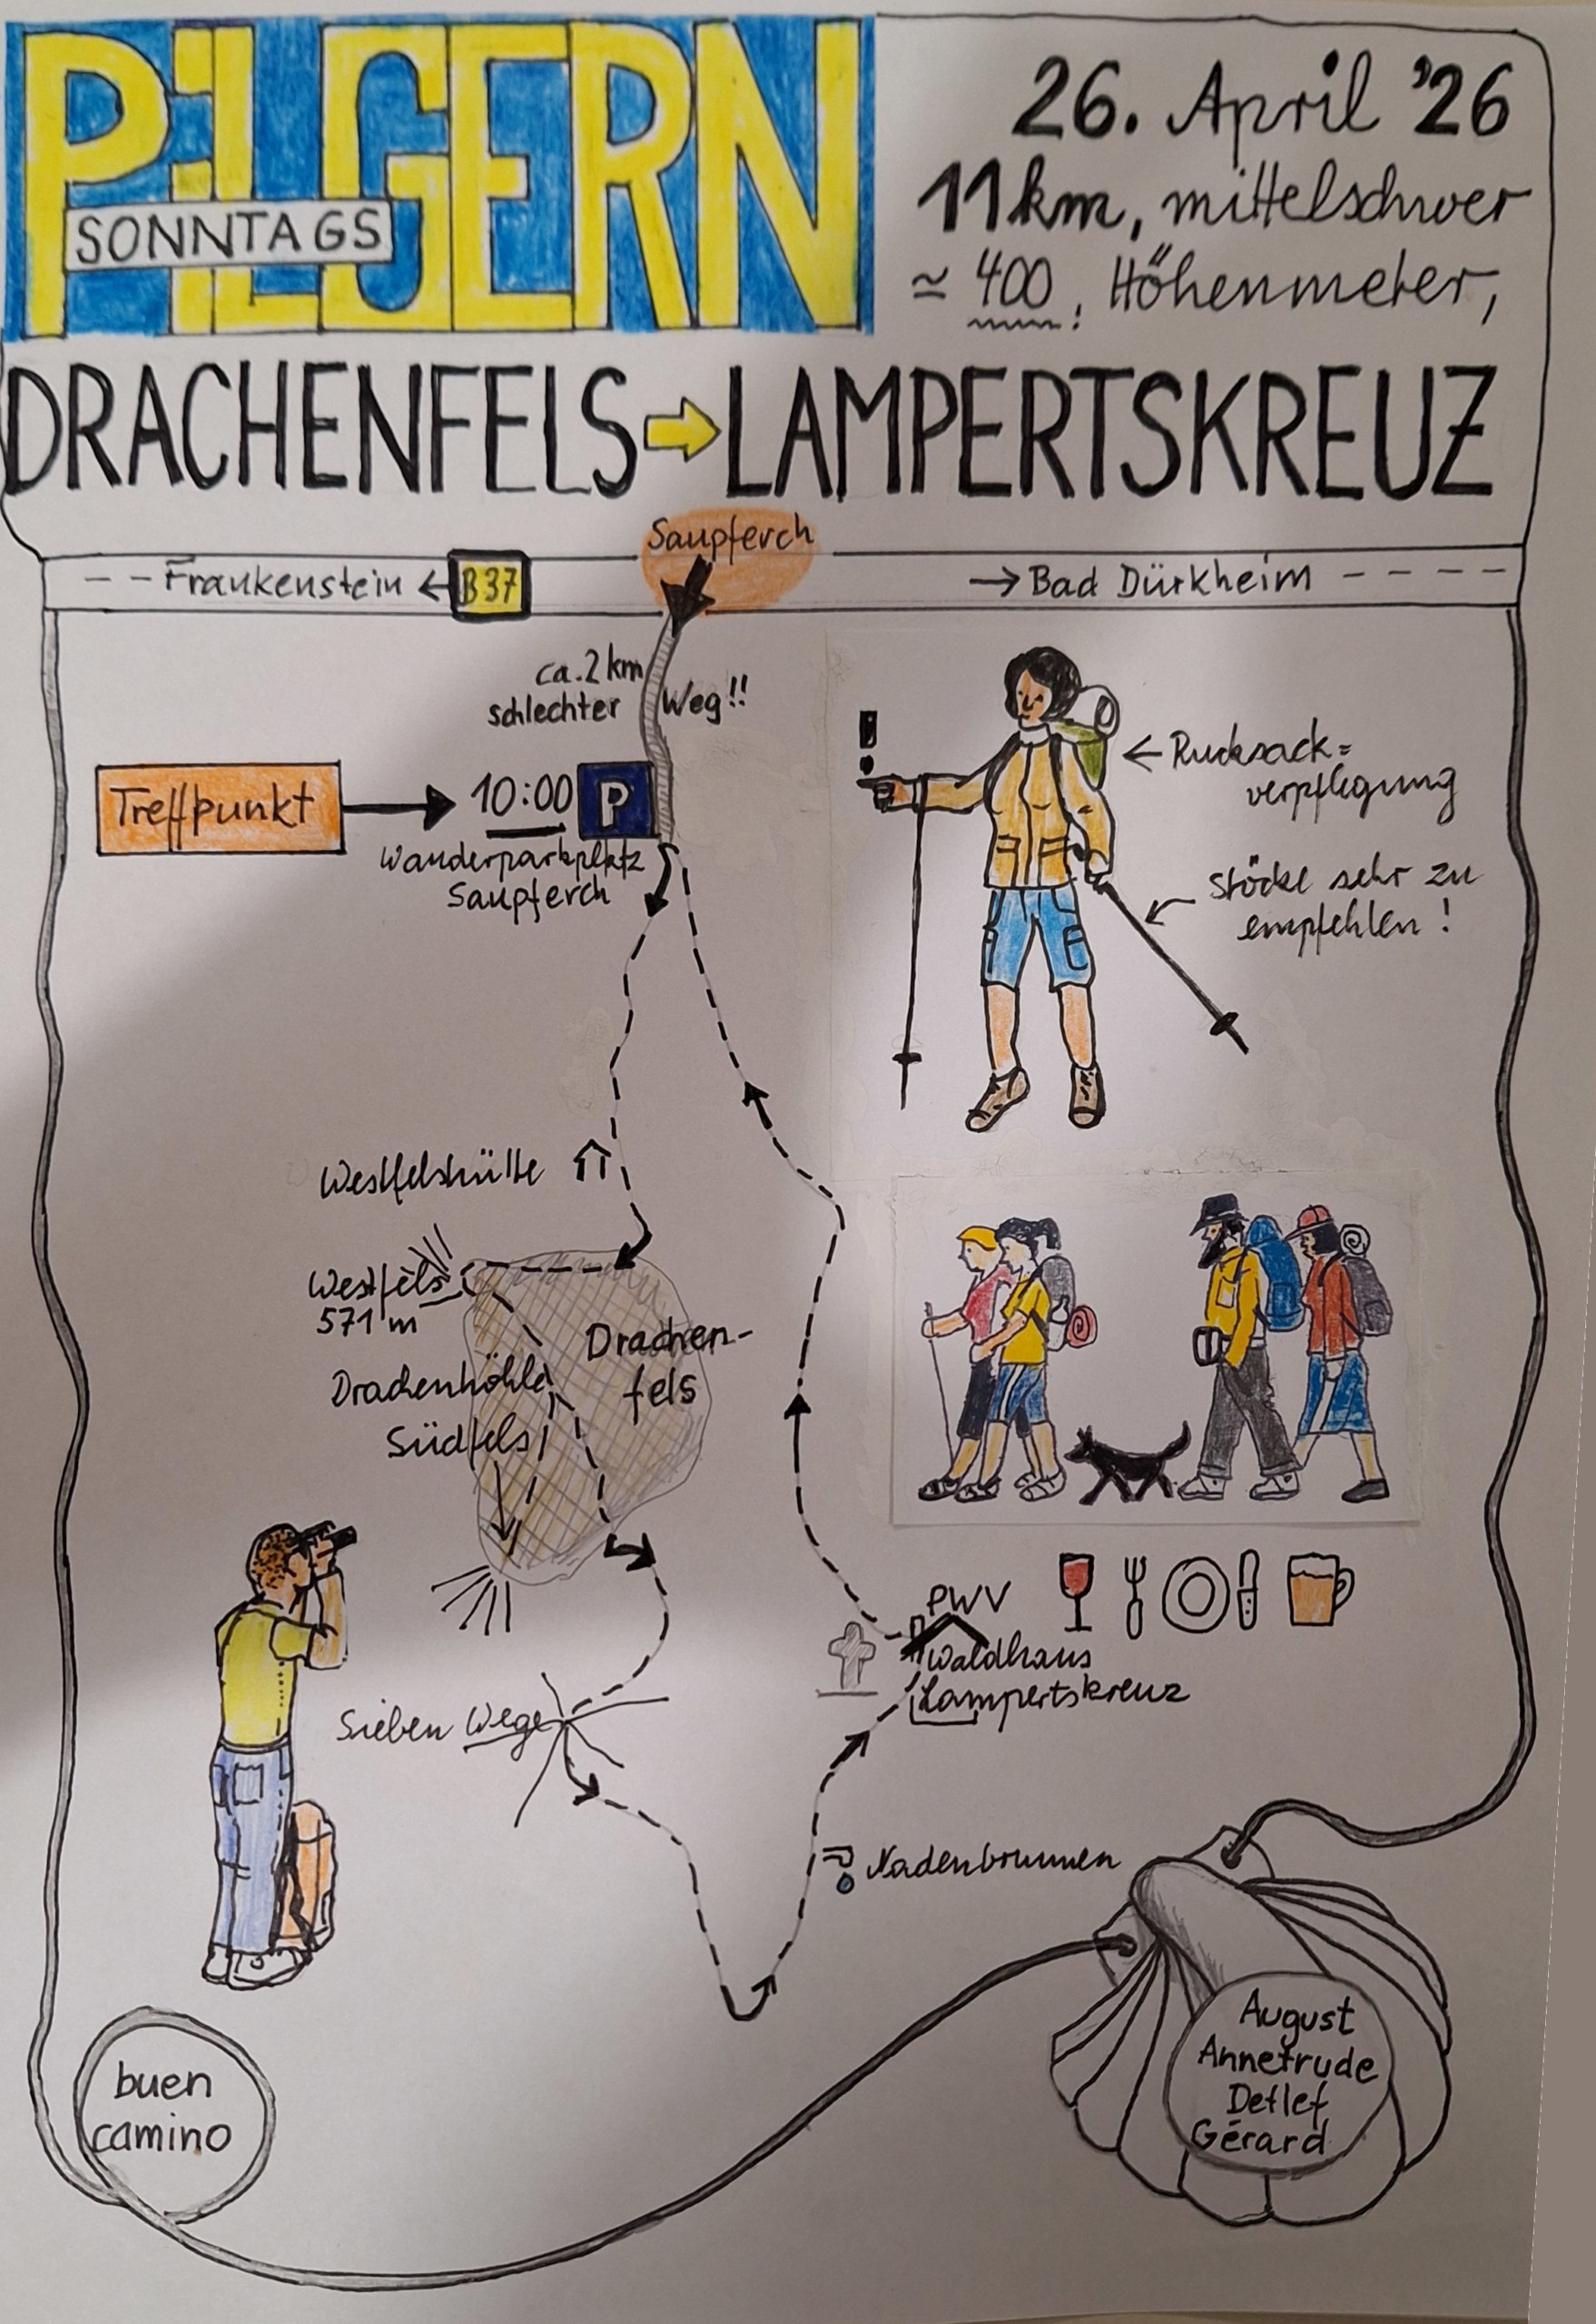 PILGERN
SONNTAGS
26. April '26
11 km, mittelschwer
≃ 400, Höhenmeter,
DRACHENFELS ⇨ LAMPERTSKREUZ
Saupferch
-- Frankenstein ← B 37
→ Bad Dürkheim ----
ca. 2 km
schlechter Weg!!
Treffpunkt → 10:00 P
Wanderparkplatz
Saupferch
!
← Rucksack=
verpflegung
Stöcke sehr zu
empfehlen!
Westfelshütte
Westfels
571 m
Drachen-
fels
Drachenhöhle
Südfels
PWV
Waldhaus
Lampertskreuz
Sieben Wege
Nadenbrunnen
buen
camino
August
Annetrude
Detlef
Gérard